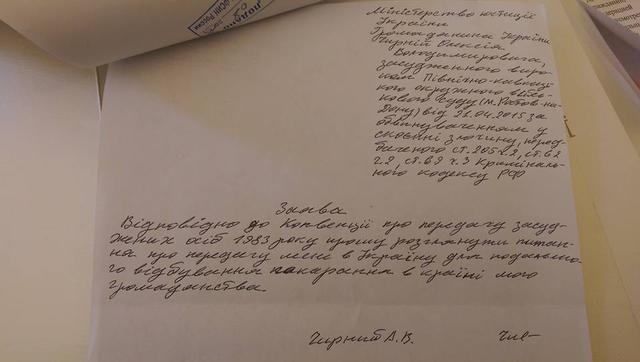 Міністерство юстиції
України
Громадянина України
Чирній Олексія
Володимировича,
засудженого виро-
ком Північно-кавказь-
кого окружного війсь-
кового суду (м. Ростов-на-
Дону) від 21.04.2015 за
обвинуваченням у
скоєнні злочину, перед-
баченого ст. 205 ч.2, ст. 62
ч.2, ст. 69 ч.3 Криміналь-
ного кодексу РФ
Заява
Відповідно до Конвенції про передачу засуд-
жених осіб 1983 року прошу розглянути питан-
ня про передачу мене в Україну для подальшо-
го відбування покарання в країні мого
громадянства.
Чирний А.В.